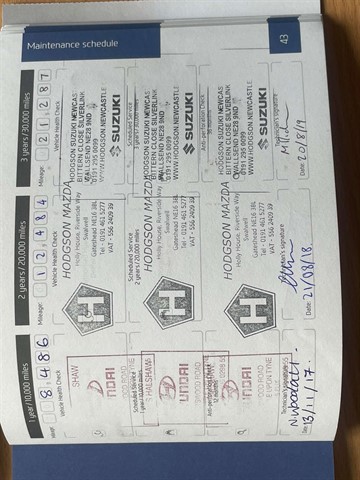 Maintenance schedule
43
1 year/10,000 miles
Mileage 8 4 8 6
Vehicle Health Check
SHAW
Scheduled Service
1 year/10,000 miles
HAILSHAW
Anti-perforation Check
12 months
Technician's signature
N. Woodcatt
Date: 13/11/17.
2 years/20,000 miles
Mileage 1 2 4 8 4
Vehicle Health Check
HODGSON MAZDA
Holly House, Riverside Way
Swalwell
Gateshead NE16 3BL
Tel - 0191 461 5277
VAT - 556 2409 39
Scheduled Service
2 years/20,000 miles
HODGSON MAZDA
Holly House, Riverside Way
Swalwell
Gateshead NE16 3BL
Tel - 0191 461 5277
VAT - 556 2409 39
HODGSON MAZDA
Holly House, Riverside Way
Swalwell
Gateshead NE16 3BL
Tel - 0191 461 5277
VAT - 556 2409 39
Technician's signature
Date: 21/08/18
3 years/30,000 miles
Mileage 2 1 2 8 7
Vehicle Health Check
HODGSON SUZUKI NEWCAS
BITTERN CLOSE SILVERLINK
WALLSEND NE28 9ND
0191 295 0099
WWW.HODGSON NEWCASTLE
SUZUKI
Scheduled Service
HODGSON SUZUKI NEWCAS
BITTERN CLOSE SILVERLINK
WALLSEND NE28 9ND
0191 295 0099
WWW.HODGSON NEWCASTLE
SUZUKI
Anti-perforation Check
HODGSON SUZUKI NEWCAS
BITTERN CLOSE SILVERLINK
WALLSEND NE28 9ND
0191 295 0099
WWW.HODGSON NEWCASTLE
SUZUKI
Technician's signature
Date: 20/8/19